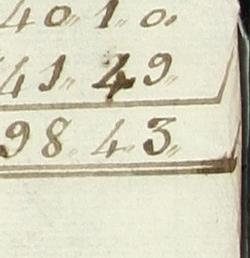 40〃 1〃 0〃
41〃 4 9〃
98〃 4〃 3〃